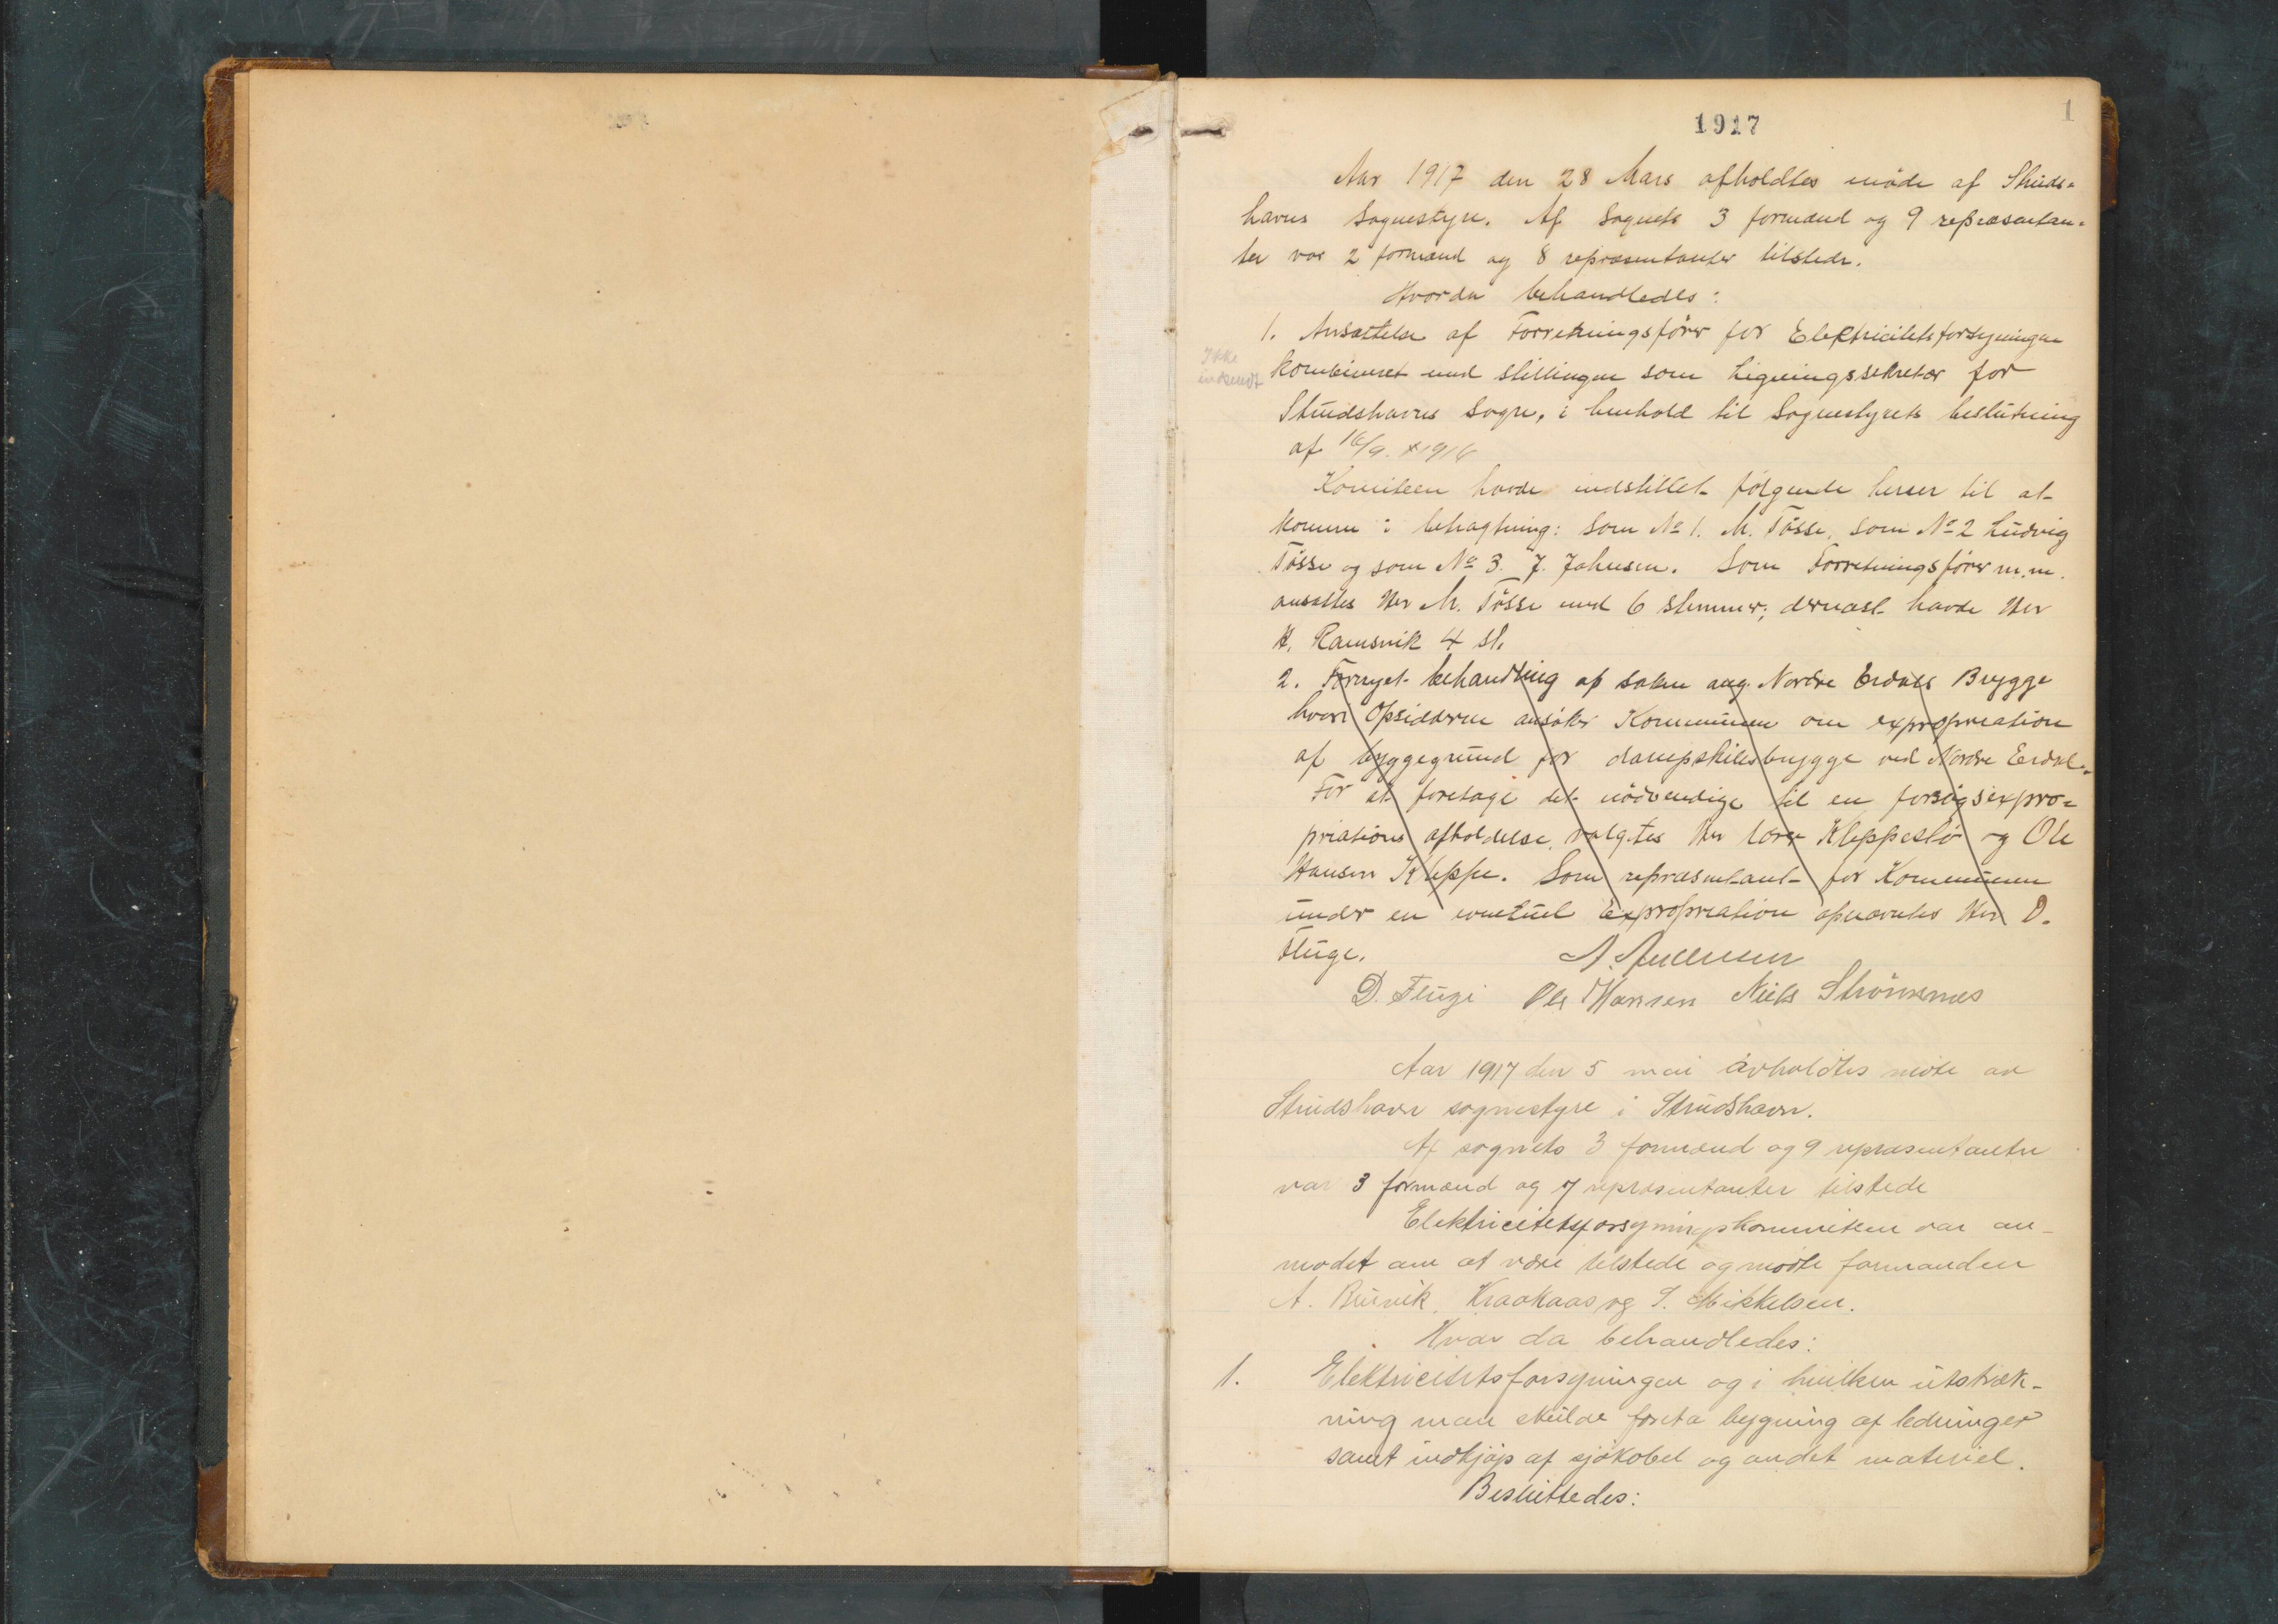 1917
1
Aar 1917 den 28 Mars afholdtes møde af Struds=
havns Sognestyre. Af Sognets 3 formænd og 9 repræsentan=
ter var 2 formænd og 8 repræsentanter tilstede.
Hvorda behandledes:
1. Ansættelse af Forretningsfører for Elektricitetsforsyningen
Ikke
kombineret med stillingen som Ligningssekretær for
Strudshavns Sogn, i henhold til Sognestyrets beslutning
af 16/9. 1916
Komiteen havde indstillet følgende herrer til at
komme i betragtning: Som No 1. M. Tösse, som No 2 Ludvig
Tösse og som No 3. J. Johnsen. Som Forretningsfører m.m.
ansattes Her M. Tösse med 6 stemmer; dernæst havde Her
H. Ramsvik 4 st.
2. Fornyet behandling af saken ang. Nordre Erdals Brygge
hvori Opsidderne ansøker Kommunen om expropriation
af byggegrund for dampskibsbrygge ved Nordre Erdal.
For at foretage det nödvendige til en forsøgsexpro=
priations afholdelse, valgtes Her lærer Kleppestø og Ole
Hansen Kleppe. Som repræsentant for Kommunen
under en eventuel Expropriation opnævntes Her D.
Fluge.
D. Fluge Ole Hansen Niels Strømsnes
Aar 1917 den 5 mai avholdtes møte av
Strudshavn sognestyre i Strudshavn.
Af sognets 3 formænd og 9 repræsentanter
var 3 formænd og 7 repræsentanter tilstede
Elektricitetsforsyningskommiteen var an-
modet om at være tilstede og mødte formanden
A. Bruvik, Kraakaas og I. Mikkelsen.
Hvor da behandledes:
1. Elektricitetsforsyningen og i hvilken utstræk-
ning man skulde foreta bygning af ledninger
samt indkjøp af sjøkabel og andet materiel.
Besluttedes: